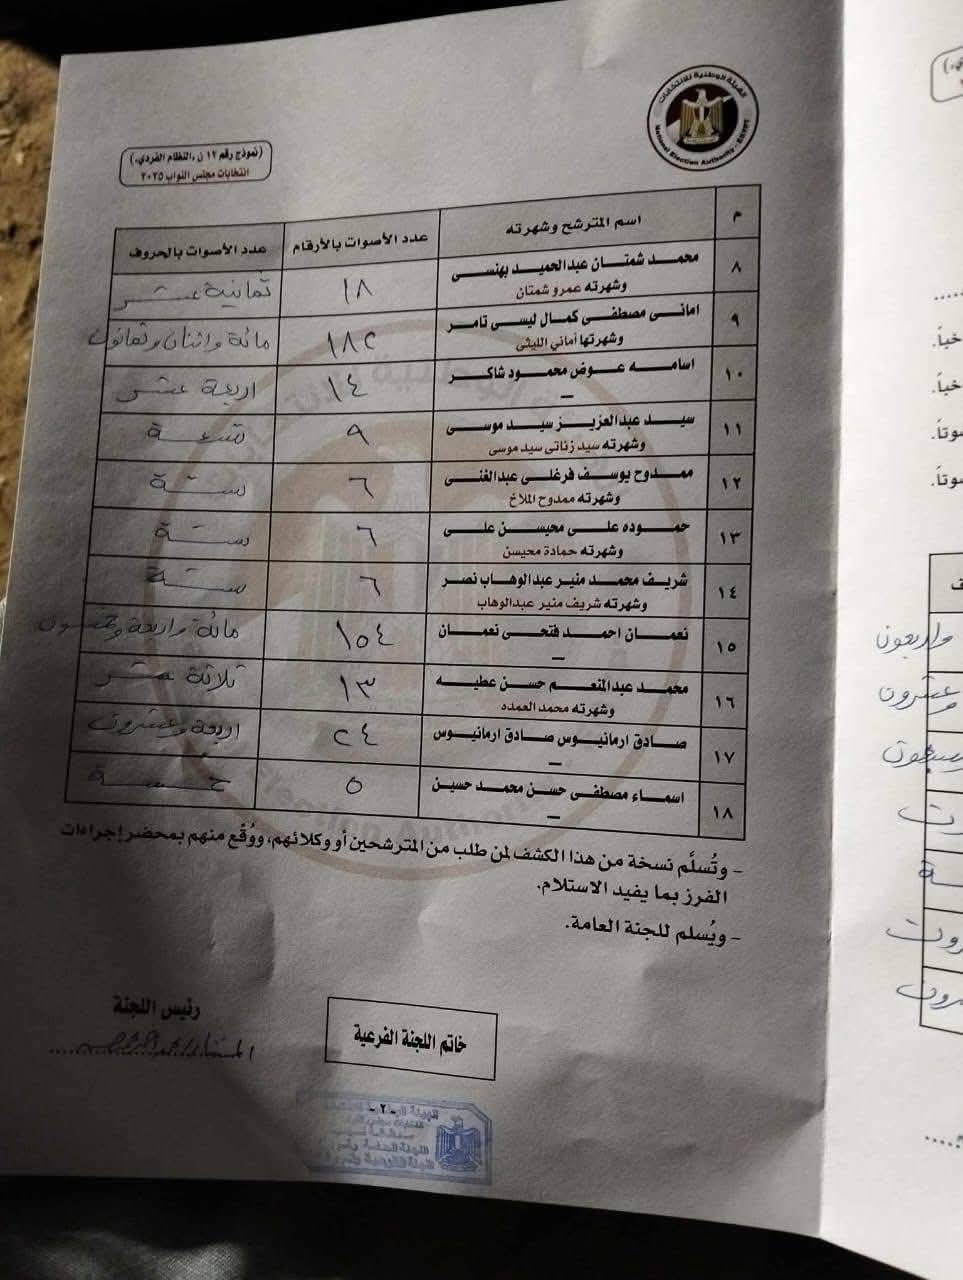 الهيئة الوطنية للانتخابات
National Election Authority - EGYPT
(نموذج رقم ١٢ ن «النظام الفردي»)
انتخابات مجلس النواب ٢٠٢٥
م اسم المترشح وشهرته عدد الأصوات بالأرقام عدد الأصوات بالحروف
٨ محمد شمتان عبدالحميد بهنسى ١٨ ثمانية عشر
وشهرته عمرو شمتان
٩ امانى مصطفى كمال ليسى تامر ١٨٢ مائة واثنان وثمانون
وشهرتها أماني الليثى
١٠ اسامه عوض محمود شاكر ١٤ اربعة عشر
–
١١ سيد عبدالعزيز سيد موسى ٩ تسعة
وشهرته سيد زناتى سيد موسى
١٢ ممدوح يوسف فرغلى عبدالغنى ٦ ستة
وشهرته ممدوح الملاخ
١٣ حموده على محيسن على ٦ ستة
وشهرته حمادة محيسن
١٤ شريف محمد منير عبدالوهاب نصر ٦ ستة
وشهرته شريف منير عبدالوهاب
١٥ نعمان احمد فتحى نعمان ١٥٤ مائة واربعة وخمسون
–
١٦ محمد عبدالمنعم حسن عطيه ١٣ ثلاثة عشر
وشهرته محمد العمده
١٧ صادق ارمانيوس صادق ارمانيوس ٢٤ اربعة وعشرون
–
١٨ اسماء مصطفى حسن محمد حسين ٥ خمسة
–
- وتُسلَّم نسخة من هذا الكشف لمن طلب من المترشحين أو وكلائهم، ووُقّع منهم بمحضر إجراءات
الفرز بما يفيد الاستلام.
- ويُسلم للجنة العامة.
رئيس اللجنة
المستشار/
خاتم اللجنة الفرعية
-٢-
خباً.
خباً.
صوتاً.
صوتاً.
واربعون
وعشرون